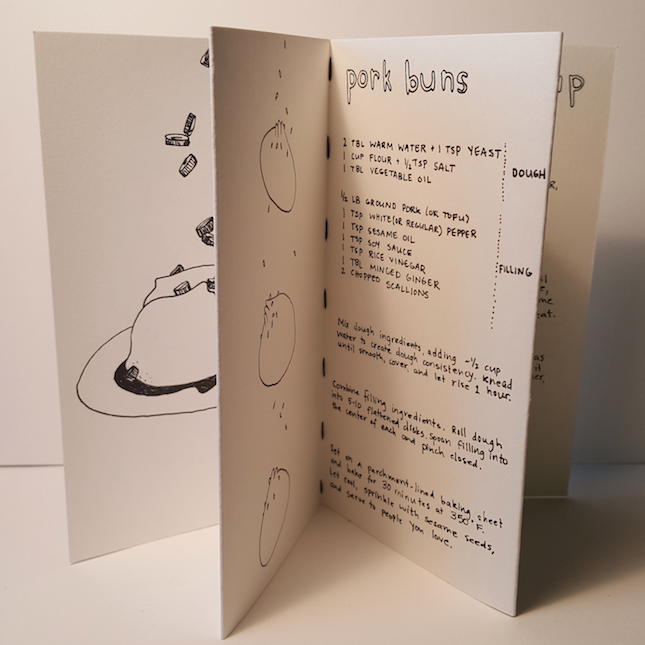 pork buns
2 TBL WARM WATER + 1 TSP YEAST
1 CUP FLOUR + 1/2 TSP SALT
1 TBL VEGETABLE OIL
DOUGH
1/2 LB GROUND PORK (OR TOFU)
1 TSP WHITE (OR REGULAR) PEPPER
1 TSP SESAME OIL
1 TSP SOY SAUCE
1 TSP RICE VINEGAR
1 TBL MINCED GINGER
2 CHOPPED SCALLIONS
FILLING
Mix dough ingredients, adding ~1/2 cup
water to create dough consistency. Knead
until smooth, cover, and let rise 1 hour.
Combine filling ingredients. Roll dough
into 5-10 flattened disks, spoon filling into
the center of each and pinch closed.
Set on a parchment-lined baking sheet
and bake for 30 minutes at 350° F.
Let cool, sprinkle with sesame seeds,
and serve to people you love.
up